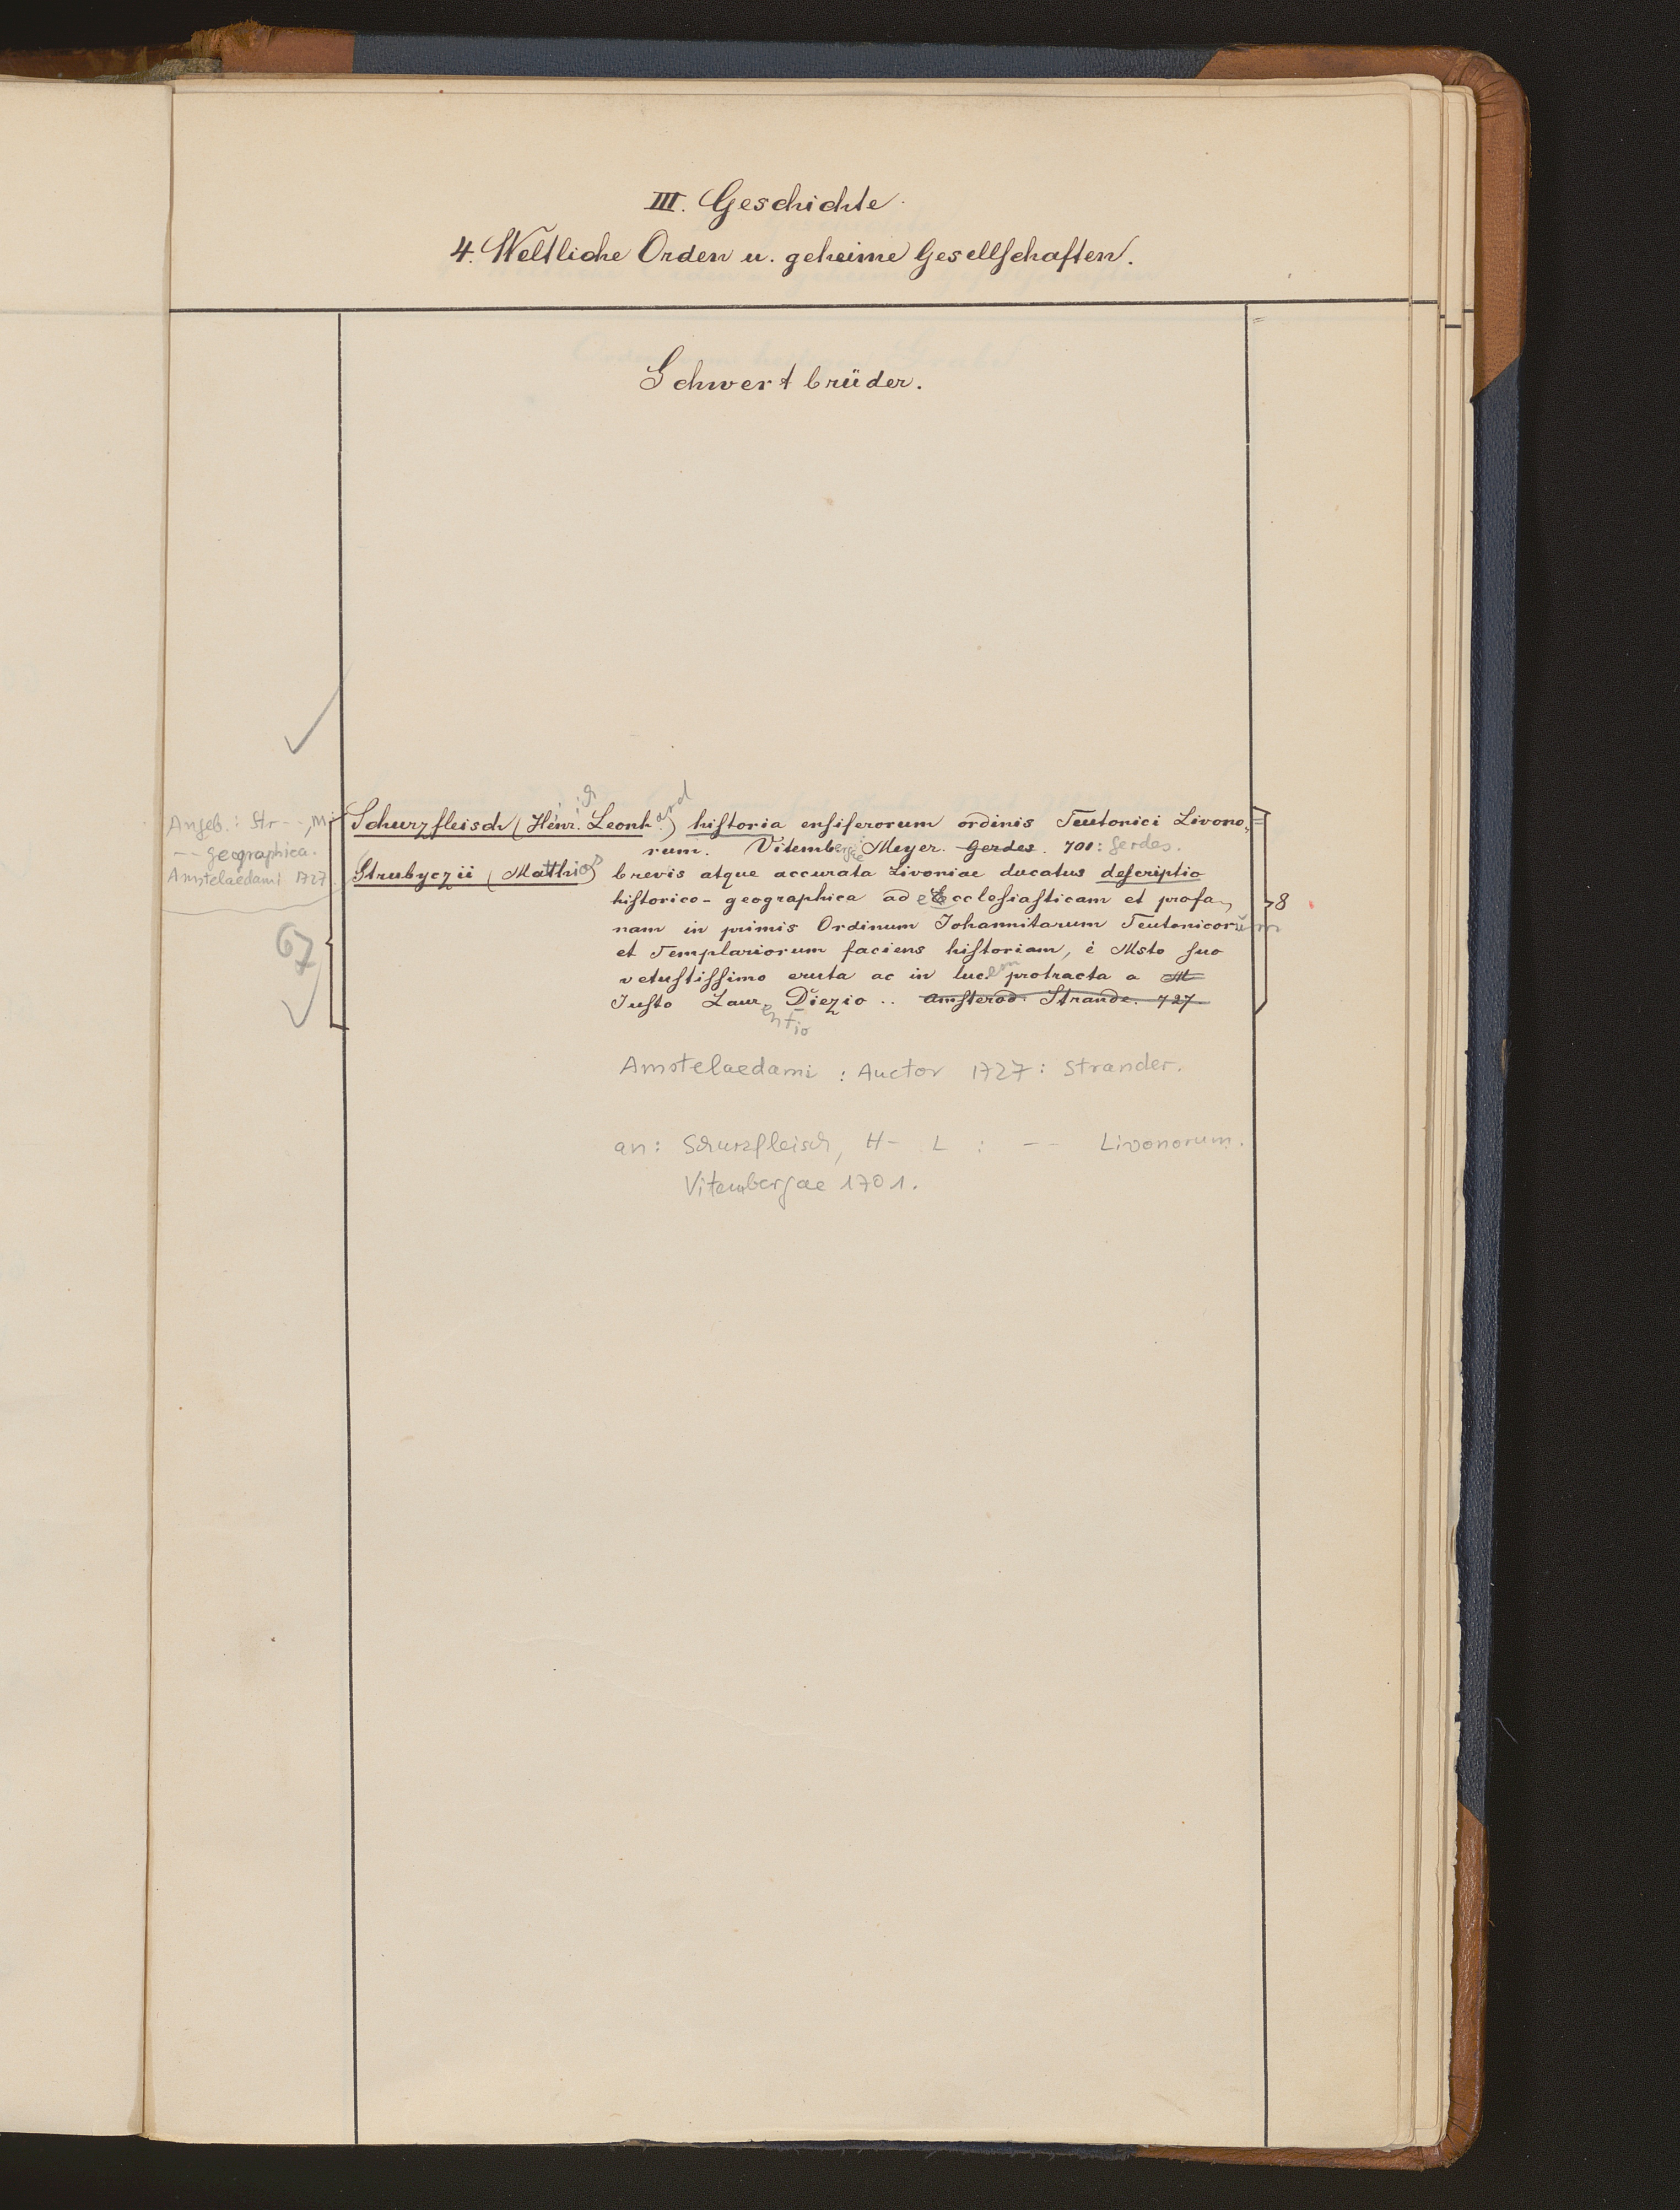 III. Geschichte.
4. Weltliche Orden u. geheime Gesellschaften.
Schwertbrüder.
Angeb.: Str--, M.
-- geographica.
Amstelaedami 1727.
67
Schurzfleisch (Heinr.ich Leonh.ard) historia ensiferorum ordinis Teutonici Livono=
rum. Vitembergae Meyer. Gerdes. 701: Gerdes.
Strubyczii (Matthias) brevis atque accurata Livoniae ducatus descriptio
historico-geographica ad eEcclesiasticam et profa-
nam in primis Ordinum Johannitarum Teutonicorum
et Templariorum faciens historiam, è Msto suo
vetustissimo eruta ac in lucem protracta a M
Justo Laurentio Diezio .. Amsterod. Strande. 727
8
Amstelaedami : Auctor 1727: Strander.
an: Schurzfleisch, H- L : -- Livonorum.
Vitembergae 1701.